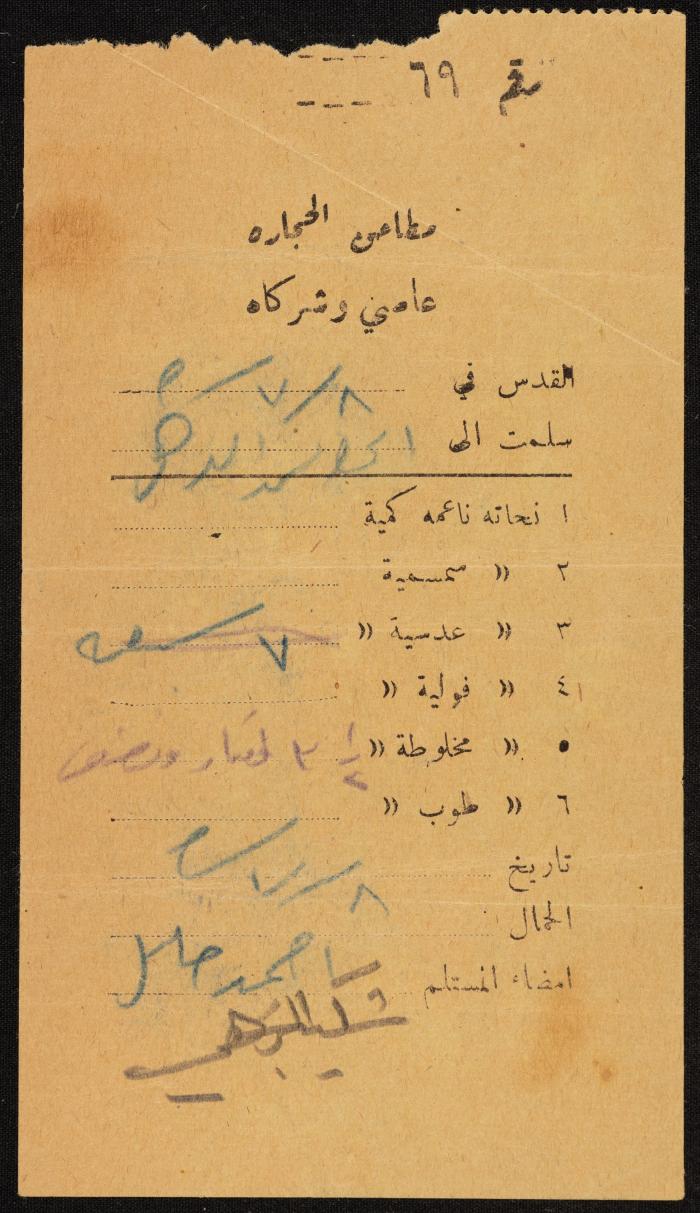 رقم ٦٩
مطاحن الحجاره
عاصي وشركاه
القدس في ٨/٧/
سلمت الى
١ نحاته ناعمه كمية
٢ " سمسمية
٣ " عدسية " ٧ سبعه
٤ " فولية "
٥ " مخلوطة " ٣ ١/٢ ونصف
٦ " طوب "
تاريخ ٨/٧/
الجمال احمد
امضاء المستلم